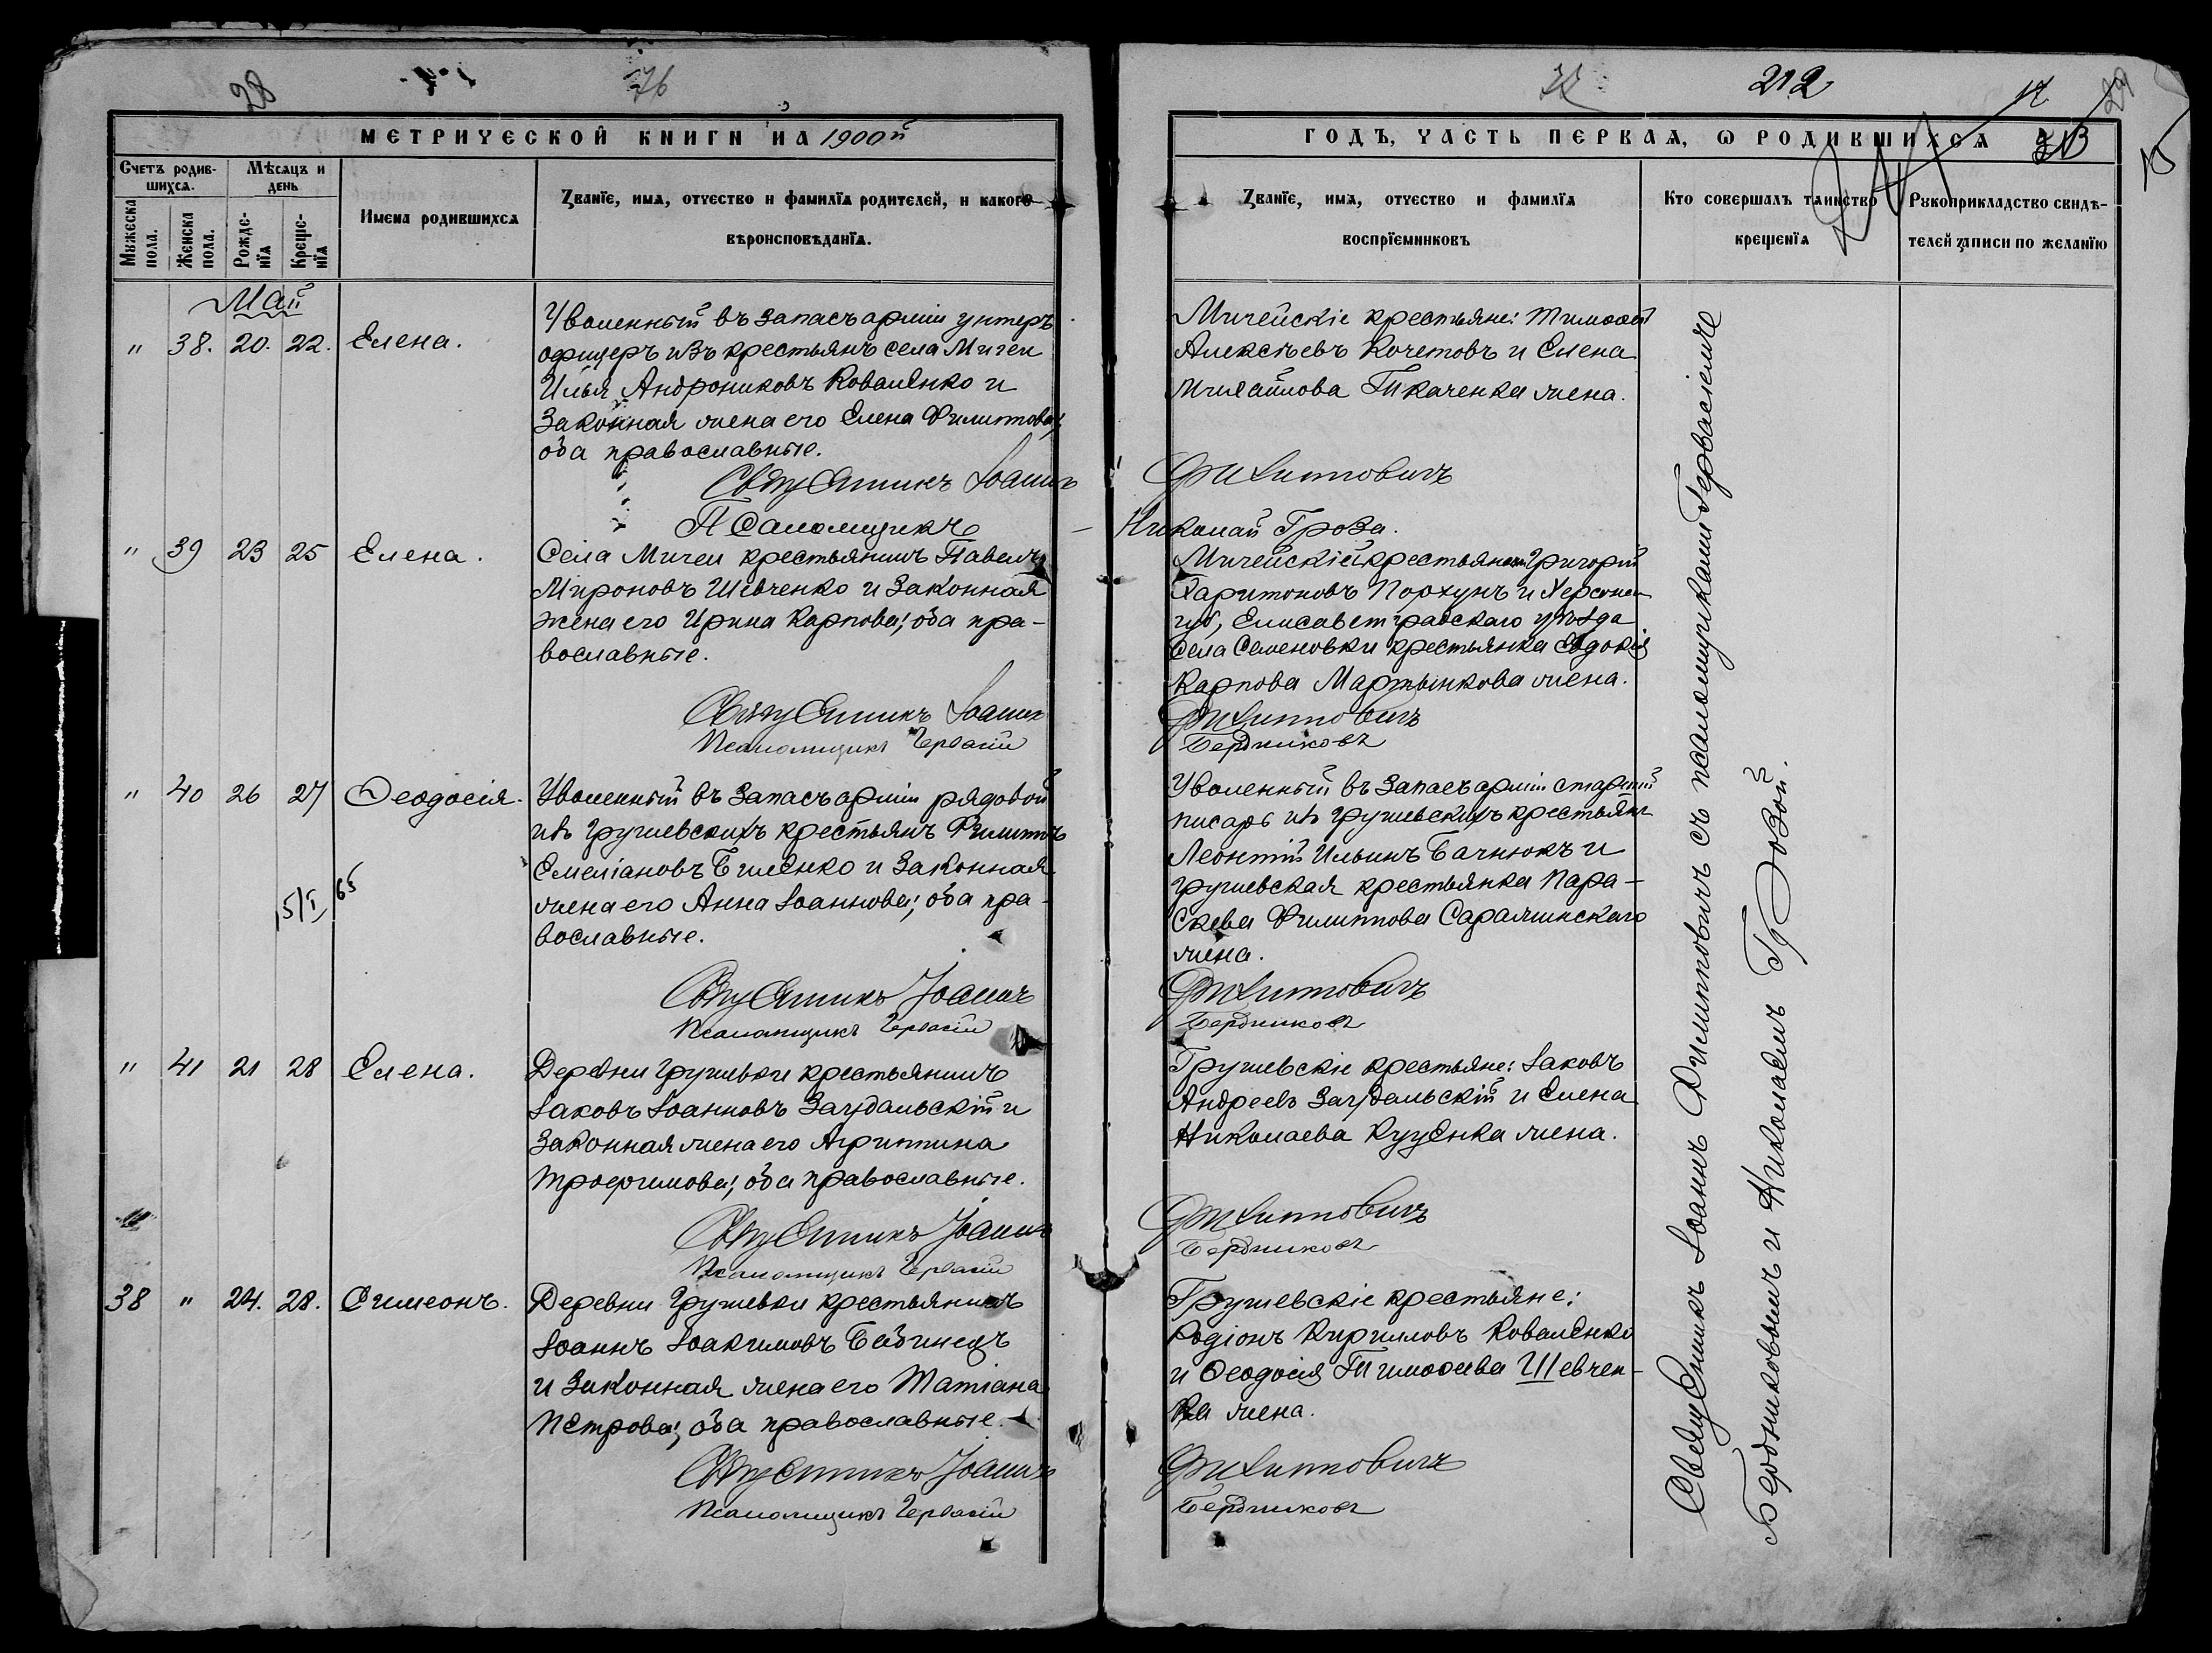 28
76
МЕТРИЧЕСКОЙ КНИГИ НА 1900й
Счетъ родив-
шихся.
Мѣсяцъ и
день
Мужеска
пола.
Женска
пола.
Рожде-
нїя
Креще-
нїя
Имена родившихся
Званїе, имя, отчество и фамилїя родителей, и какого
вѣроисповѣданїя.
Май
" 38. 20. 22. Елена.
Уволенный въ запасъ арміи унтеръ
офицеръ изъ крестьянъ села Мигеи
Илья Андрониковъ Коваленко и
законная жена его Елена Филиппова;
оба православные.
Священникъ Іоаннъ
Псаломщикъ
" 39 23 25 Елена.
Села Мигеи крестьянинъ Павелъ
Мироновъ Шевченко и законная
жена его Ирина Карпова; оба пра-
вославные.
Священникъ Іоаннъ
Псаломщикъ Гервасій
" 40 26 27 Ѳеодосія.
Уволенный въ запасъ арміи рядовой
изъ грушевскихъ крестьянъ Филиппъ
Емеліановъ Биленко и законная
жена его Анна Іоаннова; оба пра-
вославные.
Священникъ Іоаннъ
Псаломщикъ Гервасій
" 41 21 28 Елена.
Деревни Грушевки крестьянинъ
Іаковъ Іоанновъ Загудальскій и
законная жена его Агриппина
Трофимова; оба православные.
Священникъ Іоаннъ
Псаломщикъ Гервасій
38 " 24. 28. Симеонъ.
Деревни Грушевки крестьянинъ
Іоаннъ Іоакимовъ Бабинецъ
и законная жена его Татіана
Петрова; оба православные.
Священникъ Іоаннъ
Псаломщикъ Гервасій
212
29
ГОДЪ, ЧАСТЬ ПЕРВАЯ, Ѡ РОДИВШИХСЯ
Званїе, имя, отчество и фамилїя
воспрїемниковъ
Кто совершалъ таинство
крещенїя
Рукоприкладство свидѣ-
телей записи по желанїю
Мигейскіе крестьяне: Тимоѳей
Алексѣевъ Кочетовъ и Елена
Михайлова Ткаченка жена.
Филипповичъ
Николай Гроза.
Мигейскій крестьянинъ Григорій
Харитоновъ Порхунъ и Херсонск
губ, Елисаветградскаго уѣзда
села Семеновки крестьянка Евдокія
Карпова Мартынкова жена.
Филипповичъ
Бердниковъ
Уволенный въ запасъ арміи старшій
писарь изъ грушевскихъ крестьянъ
Леонтій Ильинъ Бачнюкъ и
грушевская крестьянка Пара-
скева Филиппова Саражинскаго
жена.
Филипповичъ
Бердниковъ
Грушевскіе крестьяне: Іаковъ
Андреевъ Загудальскій и Елена
Николаева Куценка жена.
Филипповичъ
Бердниковъ
Грушевскіе крестьяне:
Родіонъ Кирилловъ Коваленко
и Ѳеодосія Тимоѳеева Шевчен-
ка жена.
Филипповичъ
Бердниковъ
Священникъ Іоаннъ Филипповичъ съ псаломщиками Гервасіемъ
Бердниковымъ и Николаемъ Грозой.